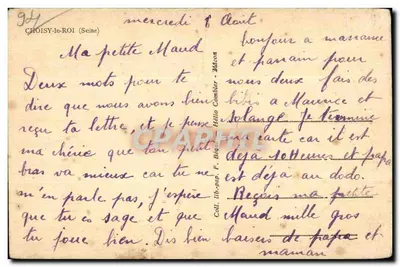 94
CHOISY-le-ROI (Seine)
mercredi 8 Août
Ma petite Maud
Deux mots pour te
dire que nous avons bien
reçu ta lettre, et je pense
ma chérie que ton petit
bras va mieux car tu ne
m'en parle pas, j'espère
que tu es sage et que
tu joue bien. Dis bien
bonjour a marraine
et parrain pour
nous deux fais des
bibis a Maurice et
Solange je termine
ma carte car il est
deja 10 heures et papa
est déja au dodo.
Reçois ma petite
Maud mille gros
baisers de papa et
maman
Coll. lib-pap. F. Hélio Combier Mâcon